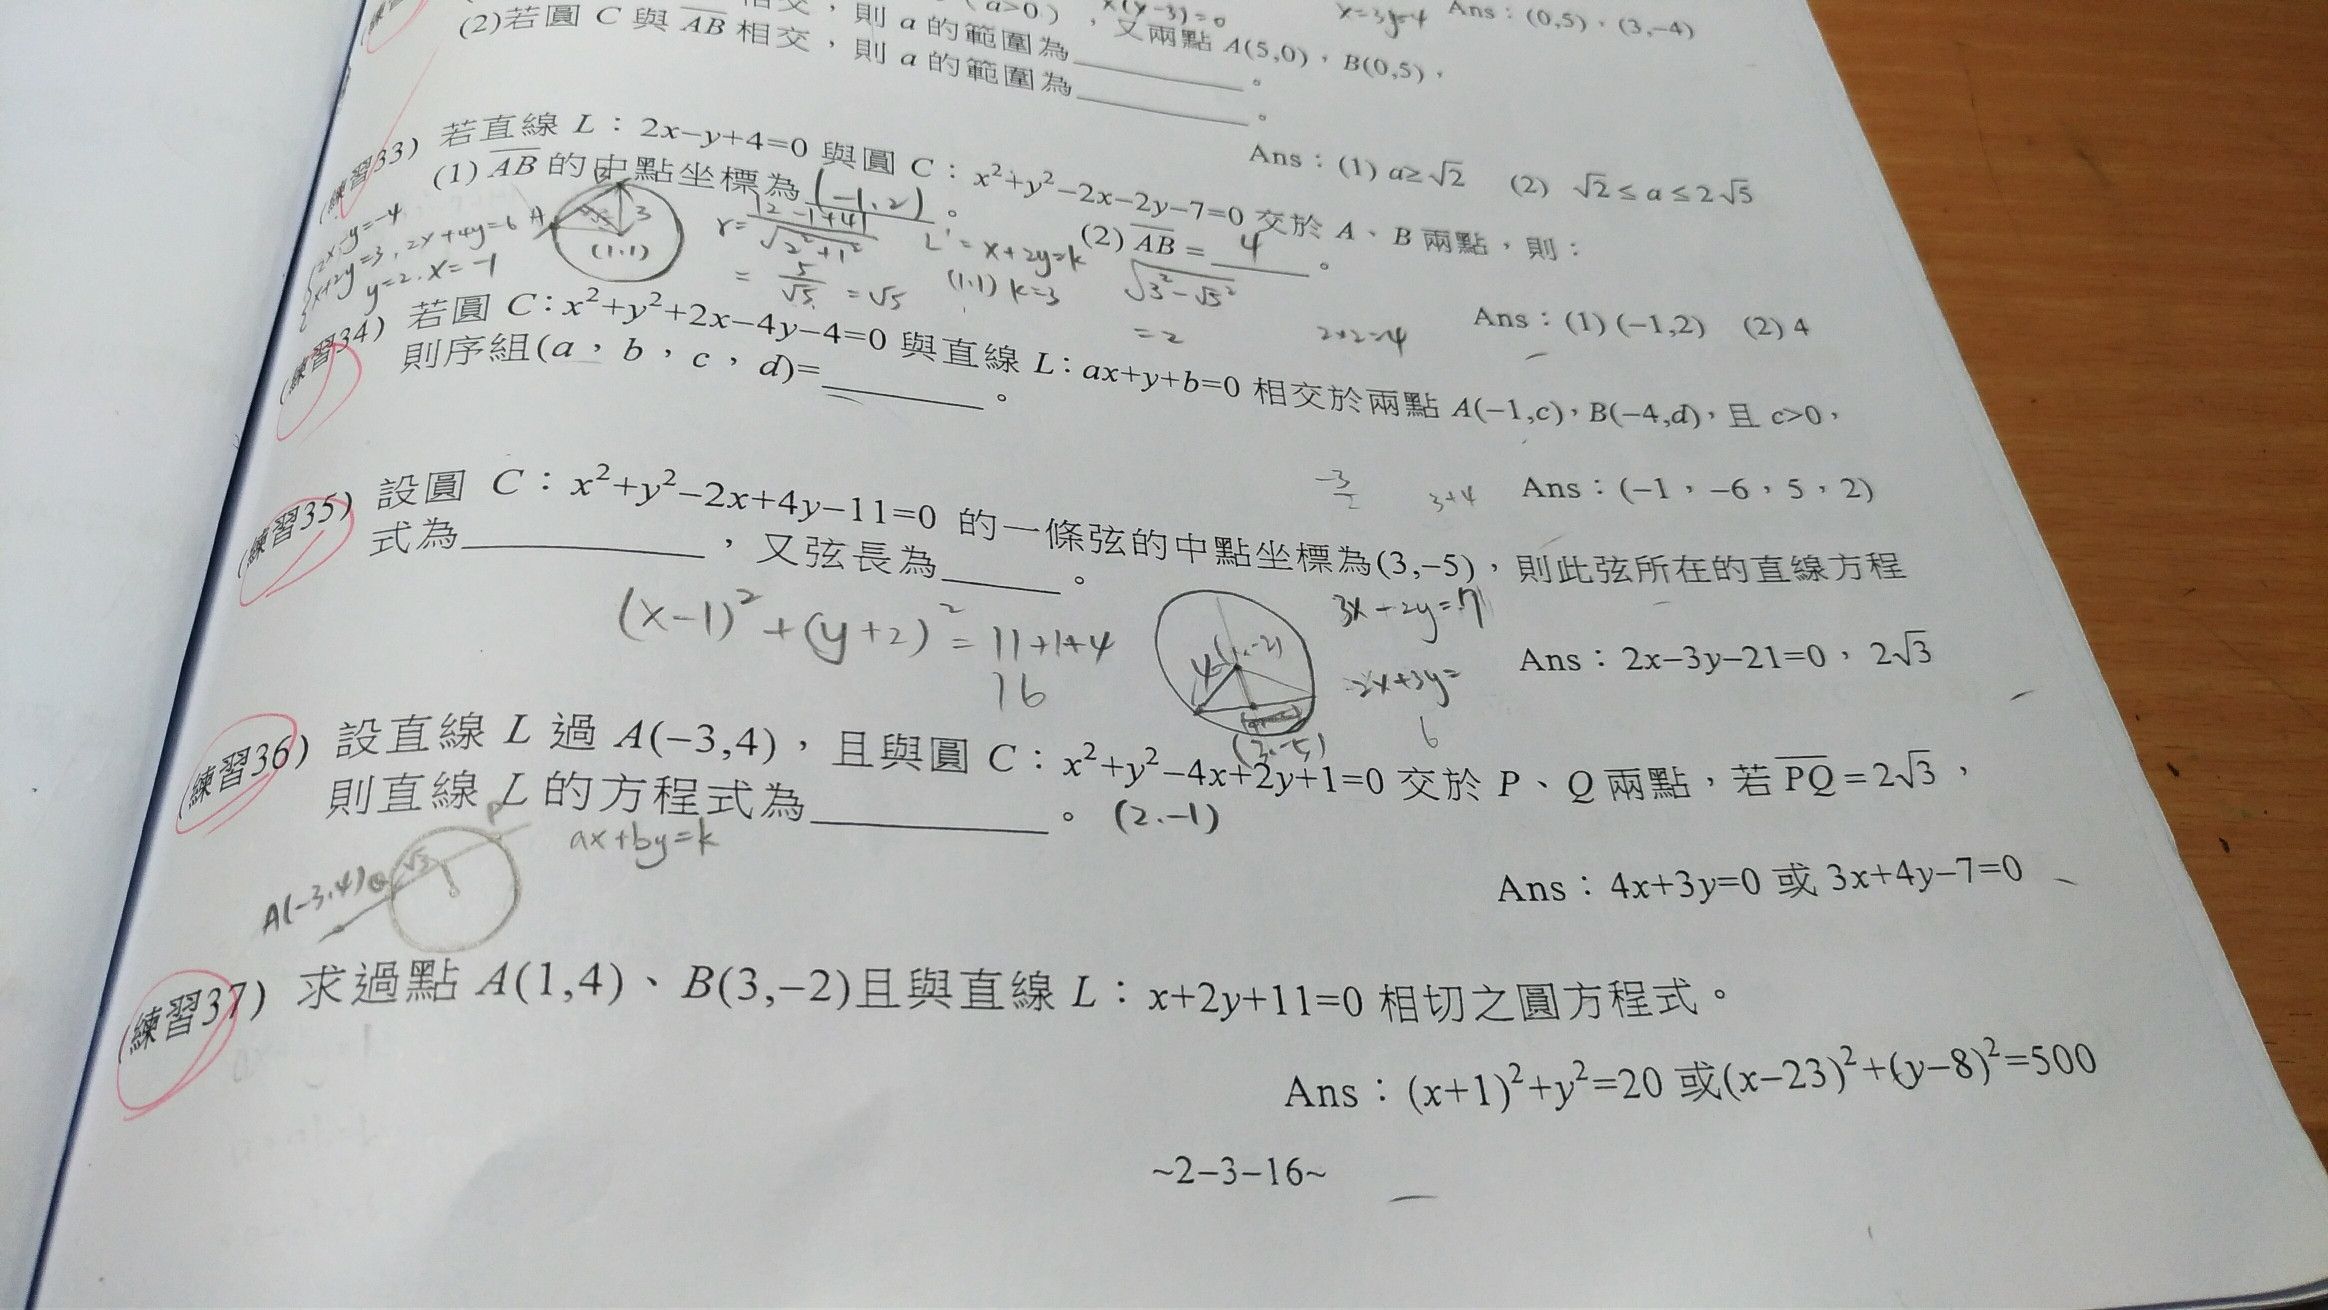 (a>0) x(y-3)=0 x=3y=4 Ans：(0,5)，(3,-4)
相交，則 a 的範圍為________。，又兩點 A(5,0)，B(0,5)，
(2)若圓 C 與 AB 相交，則 a 的範圍為________。
Ans：(1) a≥√2 (2) √2≤a≤2√5
(練習33) 若直線 L：2x-y+4=0 與圓 C：x²+y²-2x-2y-7=0 交於 A、B 兩點，則：
(1) AB 的中點坐標為 (-1,2) 。 (2) AB = 4 。
2x-y=-4
x+2y=3, 2x+4y=6
y=2. x=-1
A
3
(1.1)
r=|2-1+4|/√2²+1²
= 5/√5 = √5
L'=x+2y=k
(1.1) k=3
√3²-√5²
=2
2+2=4
Ans：(1) (-1,2) (2) 4
(練習34) 若圓 C：x²+y²+2x-4y-4=0 與直線 L：ax+y+b=0 相交於兩點 A(-1,c)，B(-4,d)，且 c>0，
則序組(a，b，c，d)=________。
Ans：(-1，-6，5，2)
-3/2 3+4
(練習35) 設圓 C：x²+y²-2x+4y-11=0 的一條弦的中點坐標為(3,-5)，則此弦所在的直線方程
式為________，又弦長為________。
(x-1)²+(y+2)²=11+1+4
16
4
(3.-5)
3x+2y=7
-2x+3y=
6
Ans：2x-3y-21=0，2√3
(練習36) 設直線 L 過 A(-3,4)，且與圓 C：x²+y²-4x+2y+1=0 交於 P、Q 兩點，若 PQ = 2√3，
則直線 L 的方程式為________。 (2.-1)
A(-3.4) Q √3 P
ax+by=k
Ans：4x+3y=0 或 3x+4y-7=0
(練習37) 求過點 A(1,4)、B(3,-2)且與直線 L：x+2y+11=0 相切之圓方程式。
Ans：(x+1)²+y²=20 或(x-23)²+(y-8)²=500
~2-3-16~